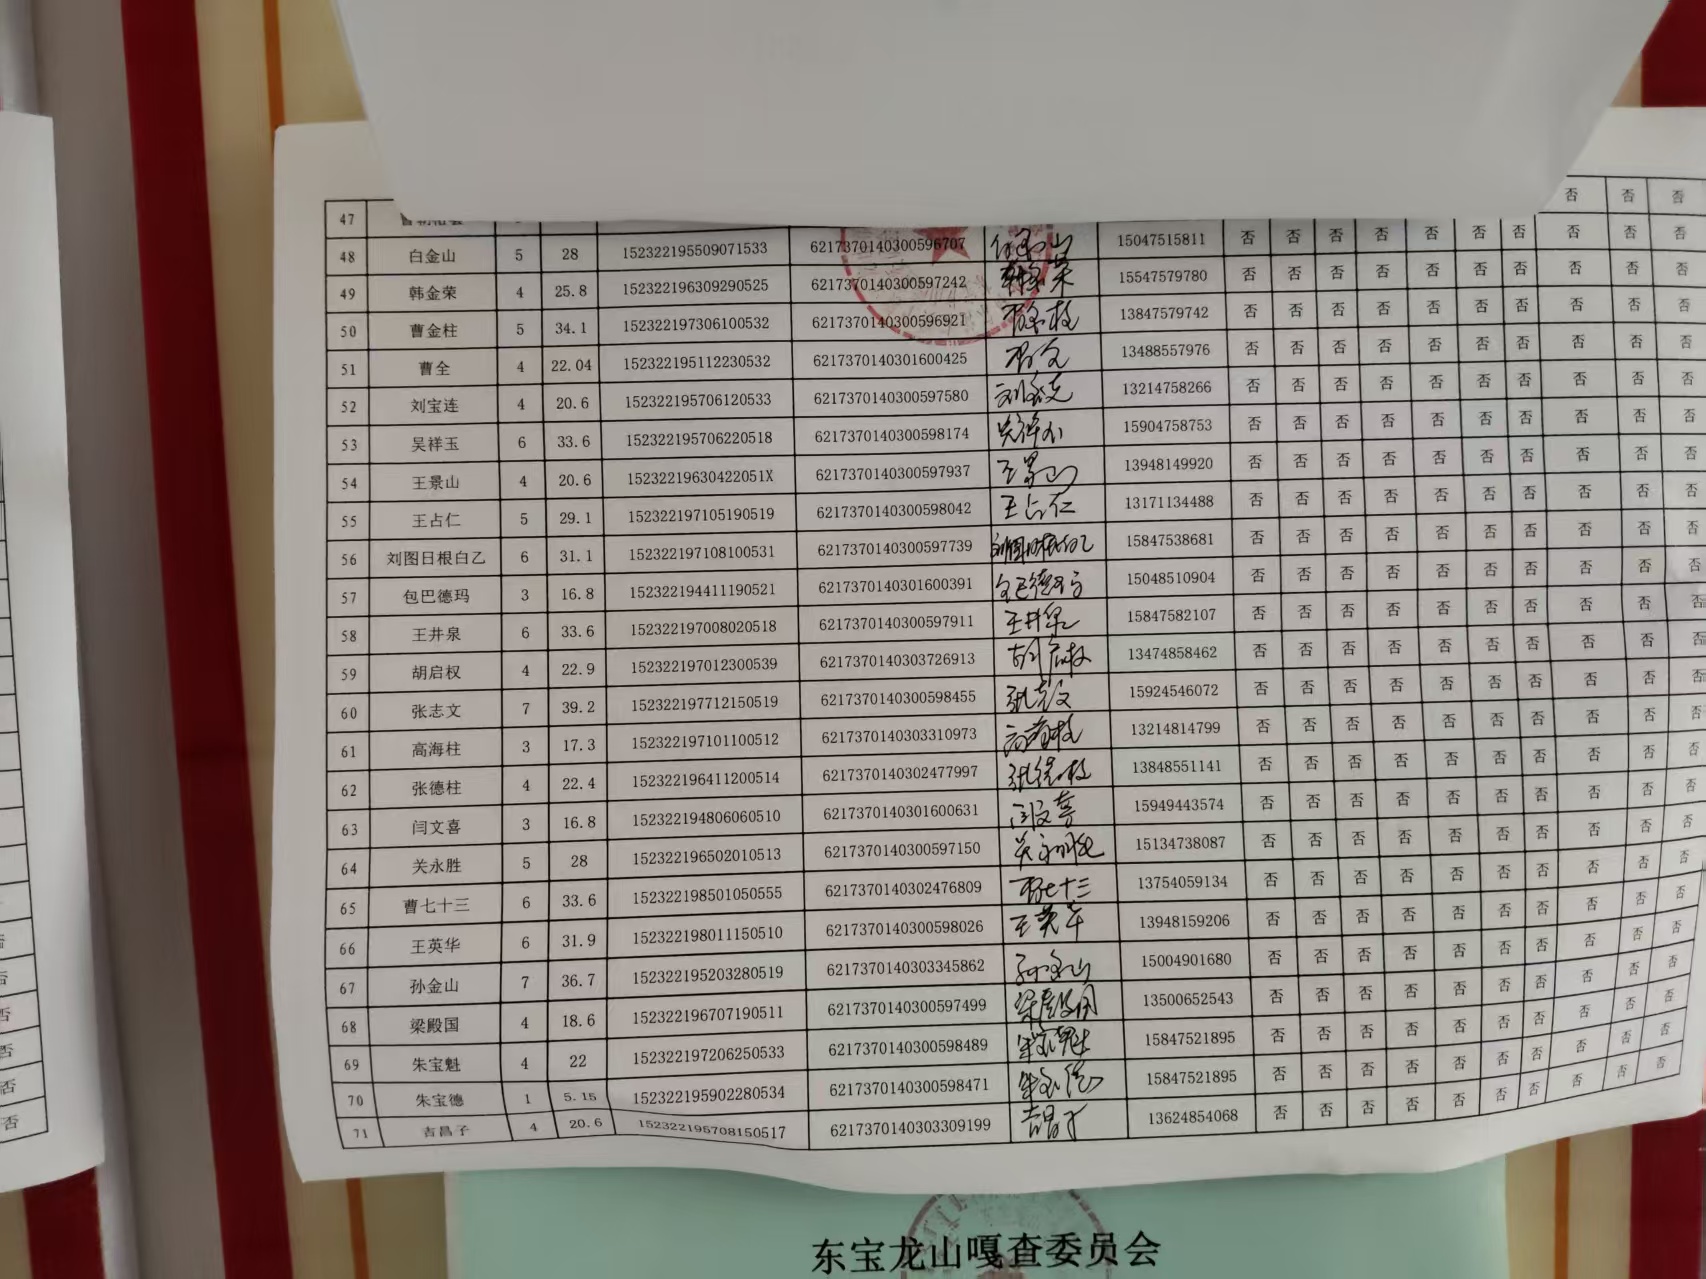 47 否 否 否
48 白金山 5 28 152322195509071533 6217370140300596707 15047515811 否 否 否 否 否 否 否 否 否 否
49 韩金荣 4 25.8 152322196309290525 6217370140300597242 15547579780 否 否 否 否 否 否 否 否 否 否
50 曹金柱 5 34.1 152322197306100532 6217370140300596921 13847579742 否 否 否 否 否 否 否 否 否 否
51 曹全 4 22.04 152322195112230532 6217370140301600425 13488557976 否 否 否 否 否 否 否 否 否 否
52 刘宝连 4 20.6 152322195706120533 6217370140300597580 13214758266 否 否 否 否 否 否 否 否 否 否
53 吴祥玉 6 33.6 152322195706220518 6217370140300598174 15904758753 否 否 否 否 否 否 否 否 否 否
54 王景山 4 20.6 15232219630422051X 6217370140300597937 王景山 13948149920 否 否 否 否 否 否 否 否 否 否
55 王占仁 5 29.1 152322197105190519 6217370140300598042 王占仁 13171134488 否 否 否 否 否 否 否 否 否 否
56 刘图日根白乙 6 31.1 152322197108100531 6217370140300597739 15847538681 否 否 否 否 否 否 否 否 否 否
57 包巴德玛 3 16.8 152322194411190521 6217370140301600391 15048510904 否 否 否 否 否 否 否 否 否 否
58 王井泉 6 33.6 152322197008020518 6217370140300597911 王井泉 15847582107 否 否 否 否 否 否 否 否 否 否
59 胡启权 4 22.9 152322197012300539 6217370140303726913 13474858462 否 否 否 否 否 否 否 否 否 否
60 张志文 7 39.2 152322197712150519 6217370140300598455 张志文 15924546072 否 否 否 否 否 否 否 否 否 否
61 高海柱 3 17.3 152322197101100512 6217370140303310973 13214814799 否 否 否 否 否 否 否 否 否 否
62 张德柱 4 22.4 152322196411200514 6217370140302477997 张德柱 13848551141 否 否 否 否 否 否 否 否 否 否
63 闫文喜 3 16.8 152322194806060510 6217370140301600631 闫文喜 15949443574 否 否 否 否 否 否 否 否 否 否
64 关永胜 5 28 152322196502010513 6217370140300597150 关永胜 15134738087 否 否 否 否 否 否 否 否 否 否
65 曹七十三 6 33.6 152322198501050555 6217370140302476809 曹七十三 13754059134 否 否 否 否 否 否 否 否 否 否
66 王英华 6 31.9 152322198011150510 6217370140300598026 王英华 13948159206 否 否 否 否 否 否 否 否 否 否
67 孙金山 7 36.7 152322195203280519 6217370140303345862 孙金山 15004901680 否 否 否 否 否 否 否 否 否 否
68 梁殿国 4 18.6 152322196707190511 6217370140300597499 梁殿国 13500652543 否 否 否 否 否 否 否 否 否 否
69 朱宝魁 4 22 152322197206250533 6217370140300598489 朱宝魁 15847521895 否 否 否 否 否 否 否 否 否 否
70 朱宝德 1 5.15 152322195902280534 6217370140300598471 朱宝德 15847521895 否 否 否 否 否 否 否 否 否 否
71 吉昌子 4 20.6 152322195708150517 6217370140303309199 吉昌子 13624854068 否 否 否 否 否 否 否 否 否 否
东宝龙山嘎查委员会